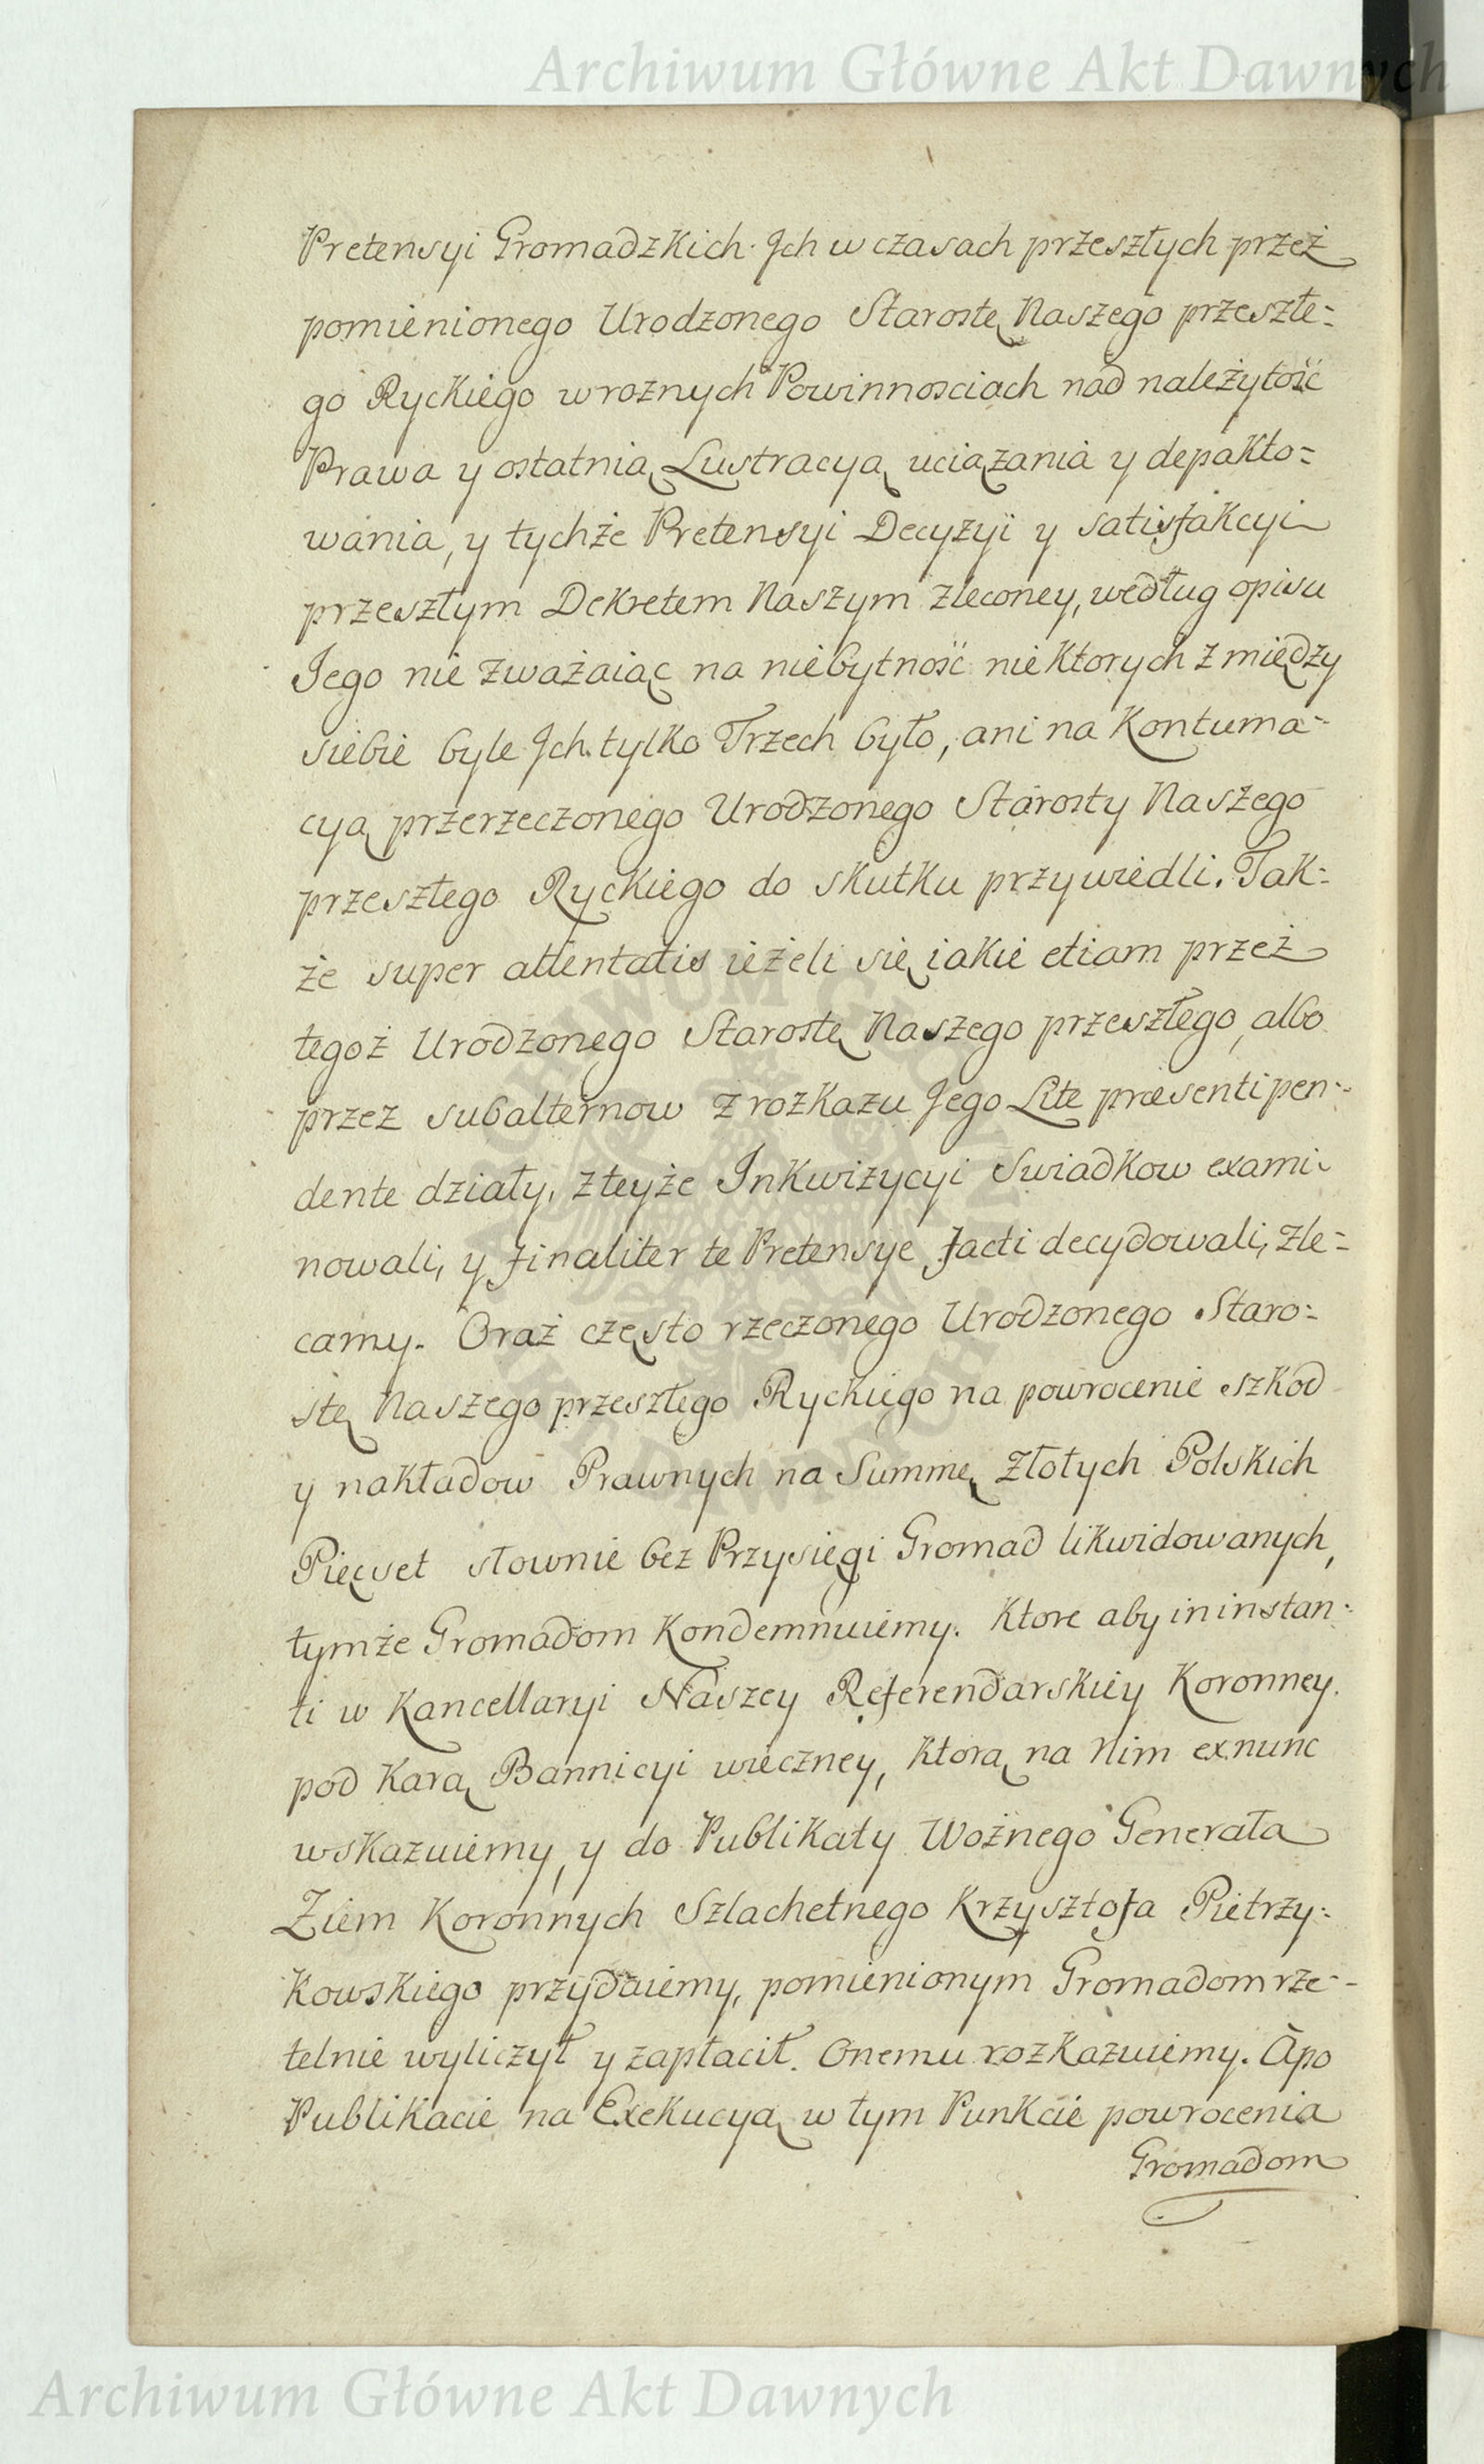 Archiwum Główne Akt Dawnych
Pretensyi Gromadzkich Ich w czasach przeszłych przeż
pomienionego Urodzonego Starostę Naszego przeszłe=
go Ryckiego w rożnych Powinnosciach nad należytość
Prawa y ostatnią Lustracyą uciązania y depakto=
wania, y tychże Pretensyi Decyzyi y satisfakcyi
przeszłym Dekretem Naszym zleconey, według opisu
Jego nie zważaiąc na niebytność niektorych z między
siebie byle Ich tylko Trzech było, ani na Kontuma=
cyą przerzeczonego Urodzonego Starosty Naszego
przeszłego Ryckiego do skutku przywiedli. Tak=
że super attentatis ieżeli się iakie etiam przeż
tegoż Urodzonego Starostę Naszego przeszłego, albo
przez subalternow z rozkazu Jego Lite præsenti pen=
dente działy, z teyże Inkwizycyi Swiadkow exami=
nowali, y finaliter te Pretensye facti decydowali, zle=
camy. Oraż często rzeczonego Urodzonego Staro=
stę Naszego przeszłego Ryckiego na powrocenie szkod
y nakładow Prawnych na Summę Złotych Polskich
Pięcset słownie bez Przysięgi Gromad likwidowanych,
tymże Gromadom Kondemnuiemy. Ktore aby in instan=
ti w Kancellaryi Naszey Referendarskiey Koronney.
pod Karą Bannicyi wieczney, Ktorą na Nim ex nunc
wskazuiemy, y do Publikaty Woźnego Generała
Ziem Koronnych Szlachetnego Krzysztofa Pietrzy=
kowskiego przydaiemy, pomienionym Gromadom rze=
telnie wyliczył y zapłacił. Onemu rozkazuiemy. A po
Publikacie na Exekucyą w tym Punkcie powrocenia
Gromadom
Archiwum Główne Akt Dawnych